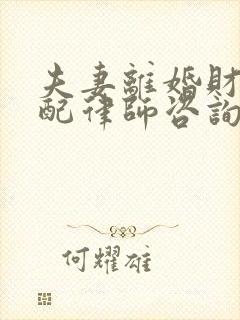 夫妻離婚財
配律師咨詢
何耀雄